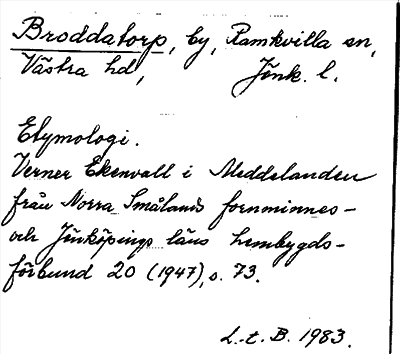 Broddatorp, by, Ramkvilla sn,
Västra hd, Jönk. l.
Etymologi.
Verner Ekenvall i Meddelanden
från Norra Smålands fornminnes-
och Jönköpings läns hembygds-
förbund 20 (1947), s. 73.
L.t.B. 1983.